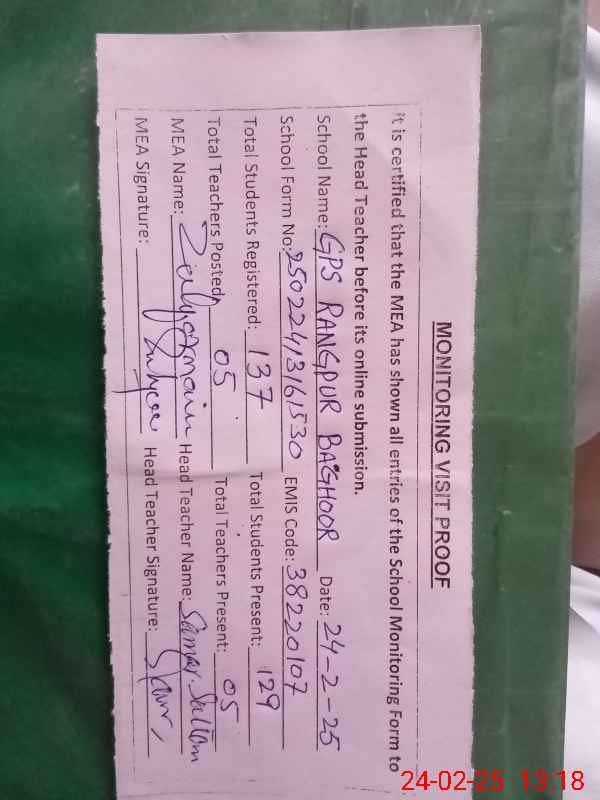 MONITORING VISIT PROOF
it is certified that the MEA has shown all entries of the School Monitoring Form to
the Head Teacher before its online submission.
School Name: GPS RANGPUR BAGHOOR Date: 24-2-25
School Form No: 25022413161530 EMIS Code: 38220107
Total Students Registered: 137 Total Students Present: 129
Total Teachers Posted: 05 Total Teachers Present: 05
MEA Name: Head Teacher Name:
MEA Signature: Head Teacher Signature:
24-02-25 13:18